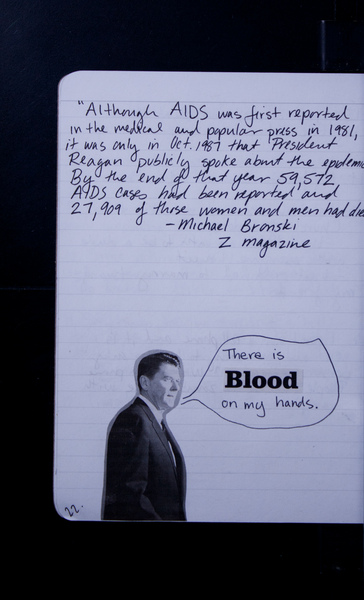 "Although AIDS was first reported
in the medical and popular press in 1981,
it was only in Oct. 1987 that President
Reagan publicly spoke about the epidemic
By the end of that year 59,572
AIDS cases had been reported and
27,909 of those women and men had died
- Michael Bronski
Z magazine
There is
Blood
on my hands.
22.